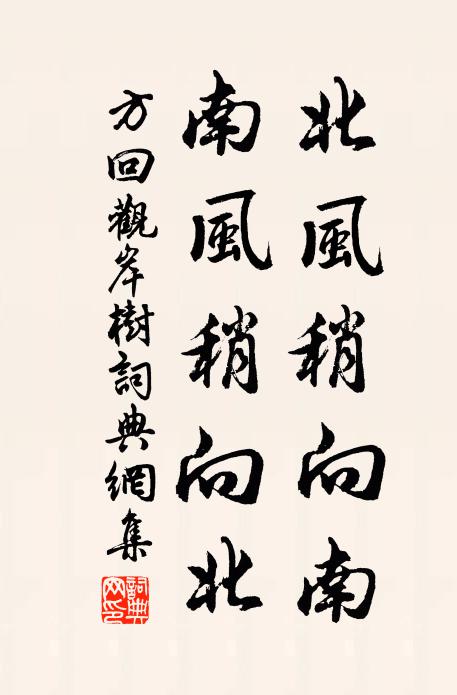 北風稍向南
南風稍向北
方回觀岸樹詞典網集
詞典网印